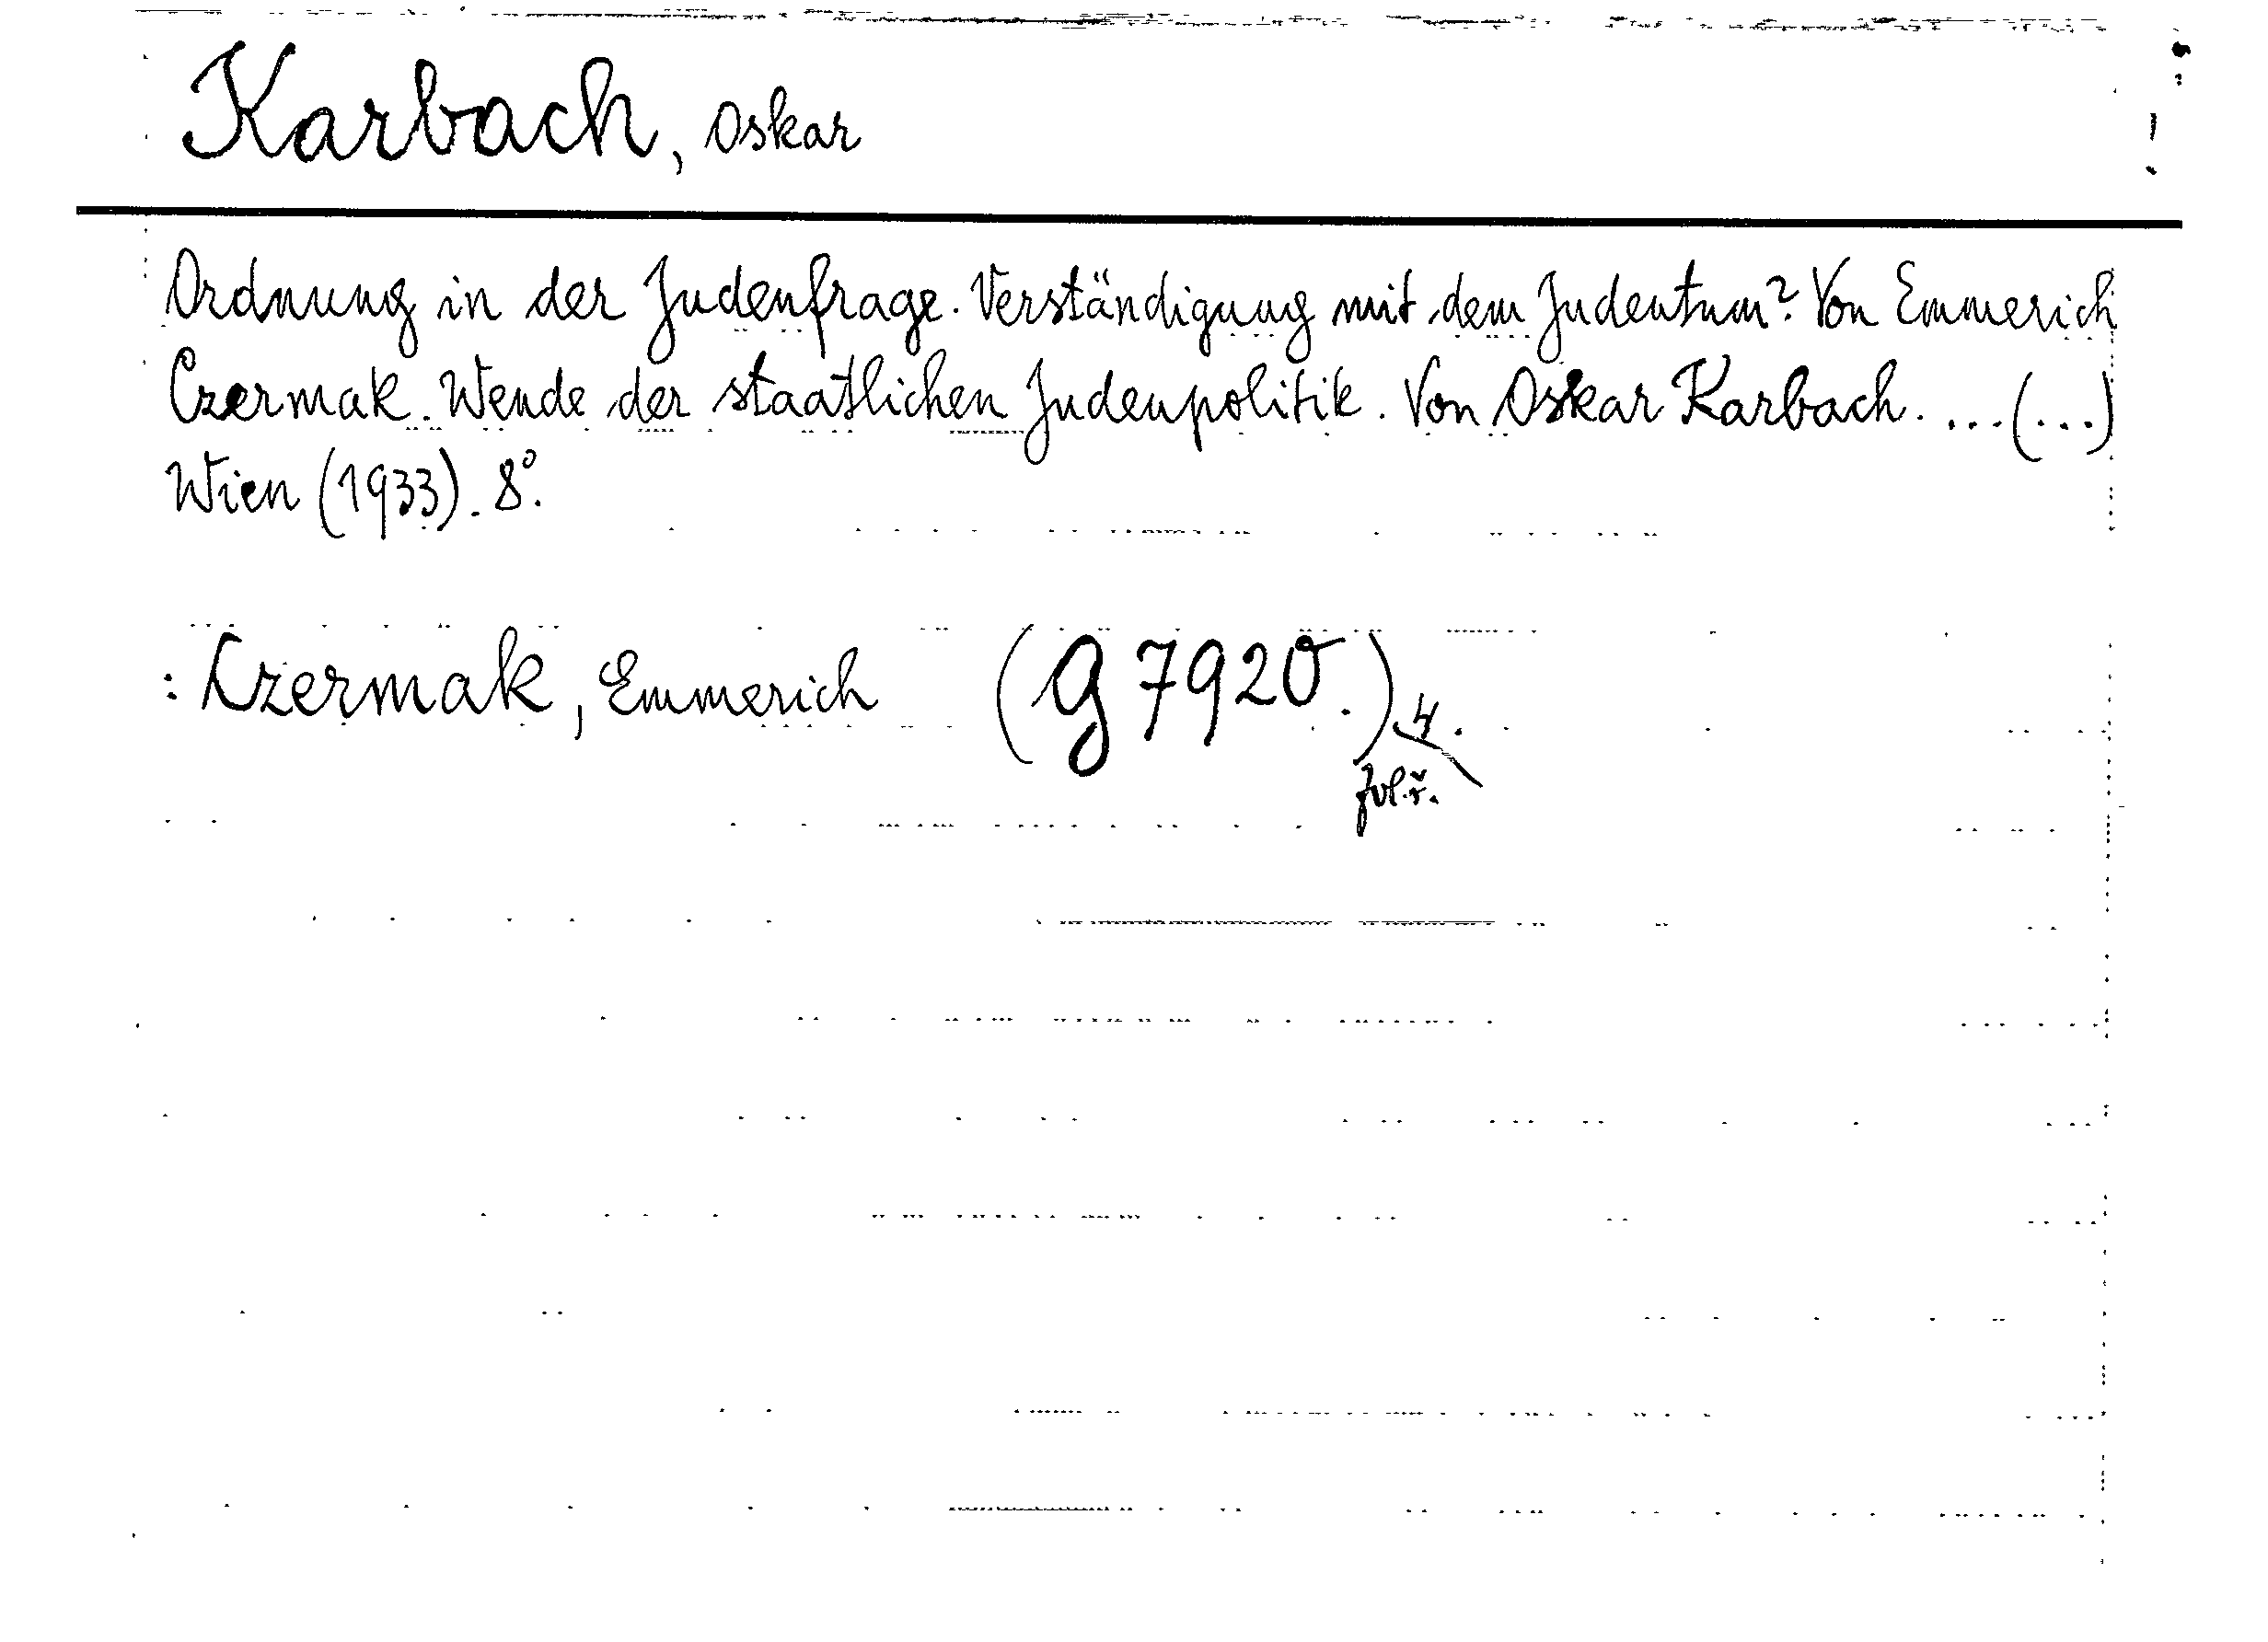 Karbach, Oskar
Ordnung in der Judenfrage. Verständigung mit dem Judentum? Von Emmerich
Czermak. Wende der staatlichen Judenpolitik. Von Oskar Karbach. ...(...)
Wien (1933). 8°.
: Czermak, Emmerich (G 7920.) 4.